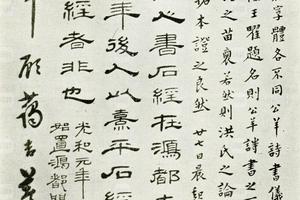 體各不同公羊詩書儀
王瞿題名則公羊詩書之
之苗裔若然則洪氏之論
拓本證之良然 廿七日晨起
書石經在鴻都
年後人以熹平石經
經者非也
光和元年
始置鴻都門
顧藹吉